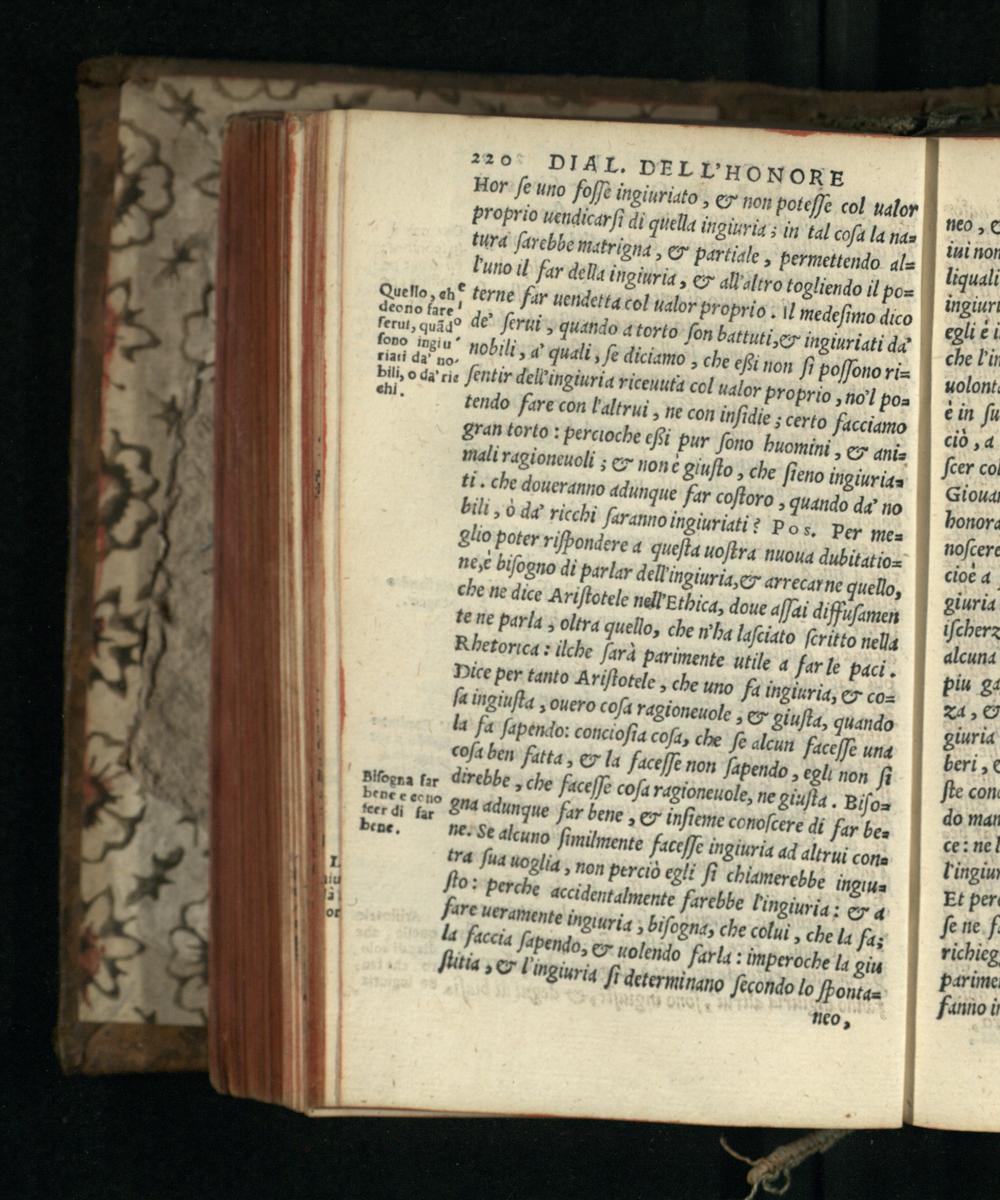 220 DIAL. DELL'HONORE
Hor ſe uno foſſe ingiuriato, & non poteſſe col ualor
proprio uendicarſi di quella ingiuria; in tal coſa la na=
tura ſarebbe matrigna, & partiale, permettendo al=
l'uno il far della ingiuria, & all'altro togliendo il po=
terne far uendetta col ualor proprio. Il medeſimo dico
de' ſerui, quando a torto ſon battuti,& ingiuriati da'
nobili, a' quali, ſe diciamo, che eßi non ſi poſſono ri=
ſentir dell'ingiuria riceuuta col ualor proprio, no'l po=
tendo fare con l'altrui, ne con inſidie; certo facciamo
gran torto: percioche eßi pur ſono huomini, & ani=
mali ragioneuoli; & non è giuſto, che ſieno ingiuria=
ti. che doueranno adunque far coſtoro, quando da' no
bili, ò da' ricchi ſaranno ingiuriati? Pos. Per me=
glio poter riſpondere a queſta uoſtra nuoua dubitatio=
ne,è biſogno di parlar dell'ingiuria,& arrecarne quello,
che ne dice Ariſtotele nell'Ethica, doue aſſai diffuſamen
te ne parla, oltra quello, che n'ha laſciato ſcritto nella
Rhetorica: ilche ſarà parimente utile a far le paci.
Dice per tanto Ariſtotele, che uno fa ingiuria, & co=
ſa ingiuſta, ouero coſa ragioneuole, & giuſta, quando
la fa ſapendo: concioſia coſa, che ſe alcun faceſſe una
coſa ben fatta, & la faceſſe non ſapendo, egli non ſi
direbbe, che faceſſe coſa ragioneuole, ne giuſta. Biſo=
gna adunque far bene, & inſieme conoſcere di far be=
ne. Se alcuno ſimilmente faceſſe ingiuria ad altrui con=
tra ſua uoglia, non perciò egli ſi chiamerebbe ingiu=
ſto: perche accidentalmente farebbe l'ingiuria: & a
fare ueramente ingiuria, biſogna, che colui, che la fa;
la faccia ſapendo, & uolendo farla: imperoche la giu
ſtitia, & l'ingiuria ſi determinano ſecondo lo ſponta=
neo,
Quello, che
deono fare i
ſerui, quãdo
ſono ingiu
riati da' no-
bili, o da' ric
chi.
Biſogna far
bene e cono
ſcer di far
bene.
neo, &
iui non
liquali
ingiuri
egli è i
che l'in
uolont
è in ſu
ciò, a
ſcer col
Giouan
honora
noſcere
cioè a
giuria
iſcherz
alcuna
piu ga
za, &
giuria
beri, e
ſte con
do man
ce: ne l
l'ingiur
Et perc
ſe ne f
richieg
parimen
fanno in